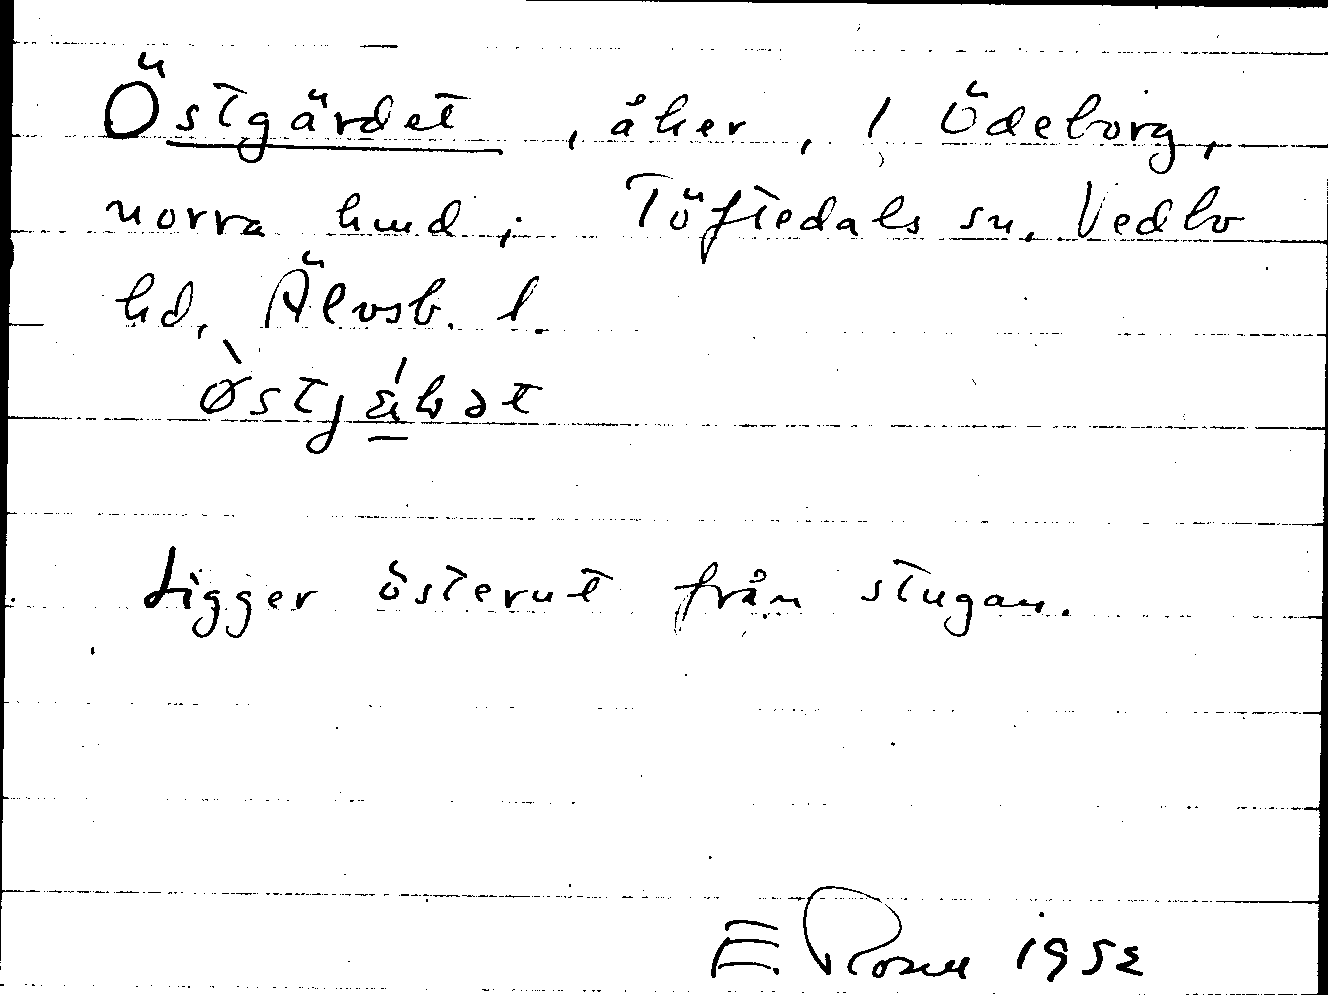 Östgärdet, åker, 1 Ödeborg,
norra hmd; Töftedals sn. Vedbo
hd, Älvsb. l.
Ligger österut från stugan.
E. Rosell 1952